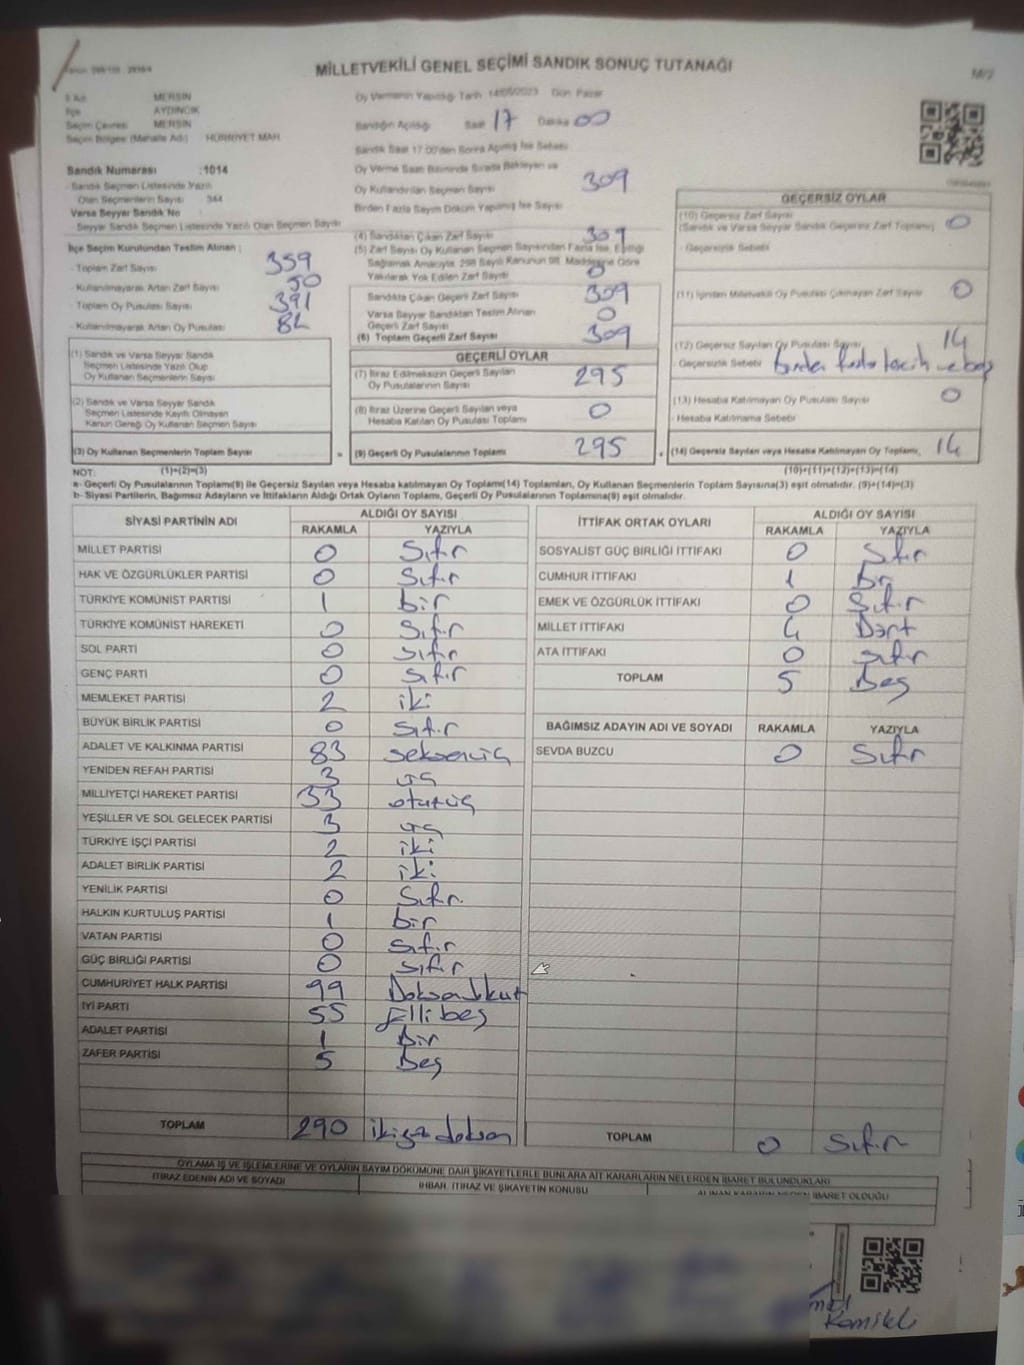 MİLLETVEKİLİ GENEL SEÇİMİ SANDIK SONUÇ TUTANAĞI
İl Adı MERSİN
İlçe AYDINCIK
Seçim Çevresi MERSİN
Seçim Bölgesi (Mahalle Adı) HÜRRİYET MAH
Sandık Numarası :1014
- Sandık Seçmen Listesinde Yazılı
Olan Seçmenlerin Sayısı 344
Varsa Seyyar Sandık No
- Seyyar Sandık Seçmen Listesinde Yazılı Olan Seçmen Sayısı
İlçe Seçim Kurulundan Teslim Alınan ;
- Toplam Zarf Sayısı 359
- Kullanılmayarak Artan Zarf Sayısı 50
- Toplam Oy Pusulası Sayısı 391
- Kullanılmayarak Artan Oy Pusulası 82
(1) Sandık ve Varsa Seyyar Sandık
Seçmen Listesinde Yazılı Olup
Oy Kullanan Seçmenlerin Sayısı
(2) Sandık ve Varsa Seyyar Sandık
Seçmen Listesinde Kayıtlı Olmayan
Kanun Gereği Oy Kullanan Seçmen Sayısı
(3) Oy Kullanan Seçmenlerin Toplam Sayısı =
Oy Vermenin Yapıldığı Tarih 14/05/2023 Gün Pazar
Sandığın Açıldığı Saat 17 Dakika 00
Sandık Saat 17:00'den Sonra Açılmış İse Sebebi
Oy Verme Saati Bitiminde Sırada Bekleyen ve
Oy Kullandırılan Seçmen Sayısı 309
Birden Fazla Sayım Döküm Yapılmış İse Sayısı
(4) Sandıktan Çıkan Zarf Sayısı 309
(5) Zarf Sayısı Oy Kullanan Seçmen Sayısından Fazla İse, Eşitliği
Sağlamak Amacıyla, 298 Sayılı Kanunun 98. Maddesine Göre
Yakılarak Yok Edilen Zarf Sayısı 0
Sandıkta Çıkan Geçerli Zarf Sayısı 309
Varsa Seyyar Sandıktan Teslim Alınan
Geçerli Zarf Sayısı 0
(6) Toplam Geçerli Zarf Sayısı 309
GEÇERLİ OYLAR
(7) İtiraz Edilmeksizin Geçerli Sayılan
Oy Pusulalarının Sayısı 295
(8) İtiraz Üzerine Geçerli Sayılan veya
Hesaba Katılan Oy Pusulası Toplamı 0
(9) Geçerli Oy Pusulalarının Toplamı 295 +
GEÇERSİZ OYLAR
(10) Geçersiz Zarf Sayısı
(Sandık ve Varsa Seyyar Sandık Geçersiz Zarf Toplamı) 0
- Geçersizlik Sebebi
(11) İçinden Milletvekili Oy Pusulası Çıkmayan Zarf Sayısı 0
(12) Geçersiz Sayılan Oy Pusulası Sayısı 14
- Geçersizlik Sebebi birden fazla tercih ve boş
(13) Hesaba Katılmayan Oy Pusulası Sayısı 0
- Hesaba Katılmama Sebebi
(14) Geçersiz Sayılan veya Hesaba Katılmayan Oy Toplamı, 14
NOT: (1)+(2)=(3) (10)+(11)+(12)+(13)=(14)
a- Geçerli Oy Pusulalarının Toplamı(9) ile Geçersiz Sayılan veya Hesaba katılmayan Oy Toplamı(14) Toplamları, Oy Kullanan Seçmenlerin Toplam Sayısına(3) eşit olmalıdır. (9)+(14)=(3)
b- Siyasi Partilerin, Bağımsız Adayların ve İttifakların Aldığı Ortak Oyların Toplamı, Geçerli Oy Pusulalarının Toplamına(9) eşit olmalıdır.
SİYASİ PARTİNİN ADI ALDIĞI OY SAYISI
RAKAMLA YAZIYLA
MİLLET PARTİSİ 0 Sıfır
HAK VE ÖZGÜRLÜKLER PARTİSİ 0 Sıfır
TÜRKİYE KOMÜNİST PARTİSİ 1 bir
TÜRKİYE KOMÜNİST HAREKETİ 0 Sıfır
SOL PARTİ 0 sıfır
GENÇ PARTİ 0 sıfır
MEMLEKET PARTİSİ 2 iki
BÜYÜK BİRLİK PARTİSİ 0 Sıfır
ADALET VE KALKINMA PARTİSİ 83 seksenüç
YENİDEN REFAH PARTİSİ 3 üç
MİLLİYETÇİ HAREKET PARTİSİ 33 otuzüç
YEŞİLLER VE SOL GELECEK PARTİSİ 3 üç
TÜRKİYE İŞÇİ PARTİSİ 2 iki
ADALET BİRLİK PARTİSİ 2 iki
YENİLİK PARTİSİ 0 Sıfır
HALKIN KURTULUŞ PARTİSİ 1 bir
VATAN PARTİSİ 0 sıfır
GÜÇ BİRLİĞİ PARTİSİ 0 sıfır
CUMHURİYET HALK PARTİSİ 99 Doksandokuz
İYİ PARTİ 55 Ellibeş
ADALET PARTİSİ 1 Bir
ZAFER PARTİSİ 5 Beş
TOPLAM 290 ikiyüz doksan
İTTİFAK ORTAK OYLARI ALDIĞI OY SAYISI
RAKAMLA YAZIYLA
SOSYALİST GÜÇ BİRLİĞİ İTTİFAKI 0 Sıfır
CUMHUR İTTİFAKI 1 Bir
EMEK VE ÖZGÜRLÜK İTTİFAKI 0 Sıfır
MİLLET İTTİFAKI 4 Dört
ATA İTTİFAKI 0 sıfır
TOPLAM 5 Beş
BAĞIMSIZ ADAYIN ADI VE SOYADI RAKAMLA YAZIYLA
SEVDA BUZCU 0 Sıfır
TOPLAM 0 Sıfır
OYLAMA İŞ VE İŞLEMLERİNE VE OYLARIN SAYIM DÖKÜMÜNE DAİR ŞİKAYETLERLE BUNLARA AİT KARARLARIN NELERDEN İBARET BULUNDUKLARI
İTİRAZ EDENİN ADI VE SOYADI İHBAR, İTİRAZ VE ŞİKAYETİN KONUSU ALINAN KARARIN NEDEN İBARET OLDUĞU